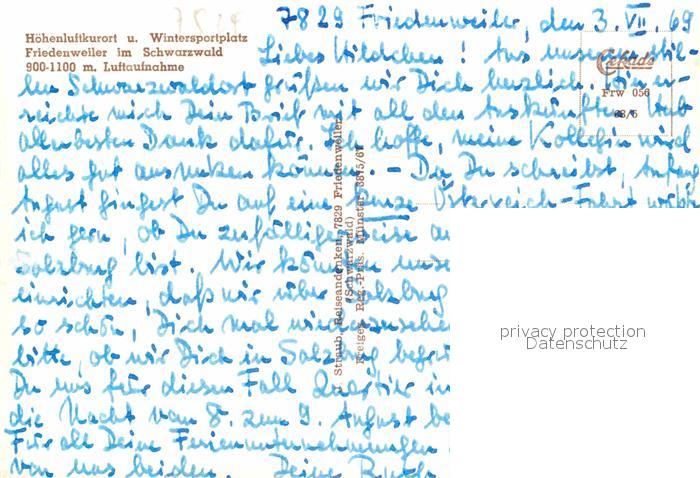 7829 Friedenweiler, den 3. VII. 69
Höhenluftkurort u. Wintersportplatz
Friedenweiler im Schwarzwald
900-1100 m. Luftaufnahme
Cekade
Frw 056
68/6
Liebes Hildchen! Aus unserem stil-
len Schwarzwaldort grüßen wir Dich herzlich. Hier er-
reichte mich Dein Brief mit all den Auskünften. Hab
allerbesten Dank dafür. Ich hoffe, meine Kollegin wird
alles gut ausnützen können. - Da Du schreibst, Anfang
August gingest Du auf eine kurze Österreich-Fahrt, wüßte
ich gern, ob Du zufälligerweise
Salzburg bist. Wir können
einrichten, daß wir über Salzburg
so schön, Dich mal wiederzusehen
bitte, ob wir Dich in Salzburg
Du uns für diesen Fall Quartier in
die Nacht vom 8. zum 9. August be
Für all Deine Ferienunternehmungen
von uns beiden. Deine Ruth
Straub, Reiseandenken, 7829 Friedenweiler
(Schwarzwald)
Freigeg. Reg.-Präs. Münster 3875/67
privacy protection
Datenschutz